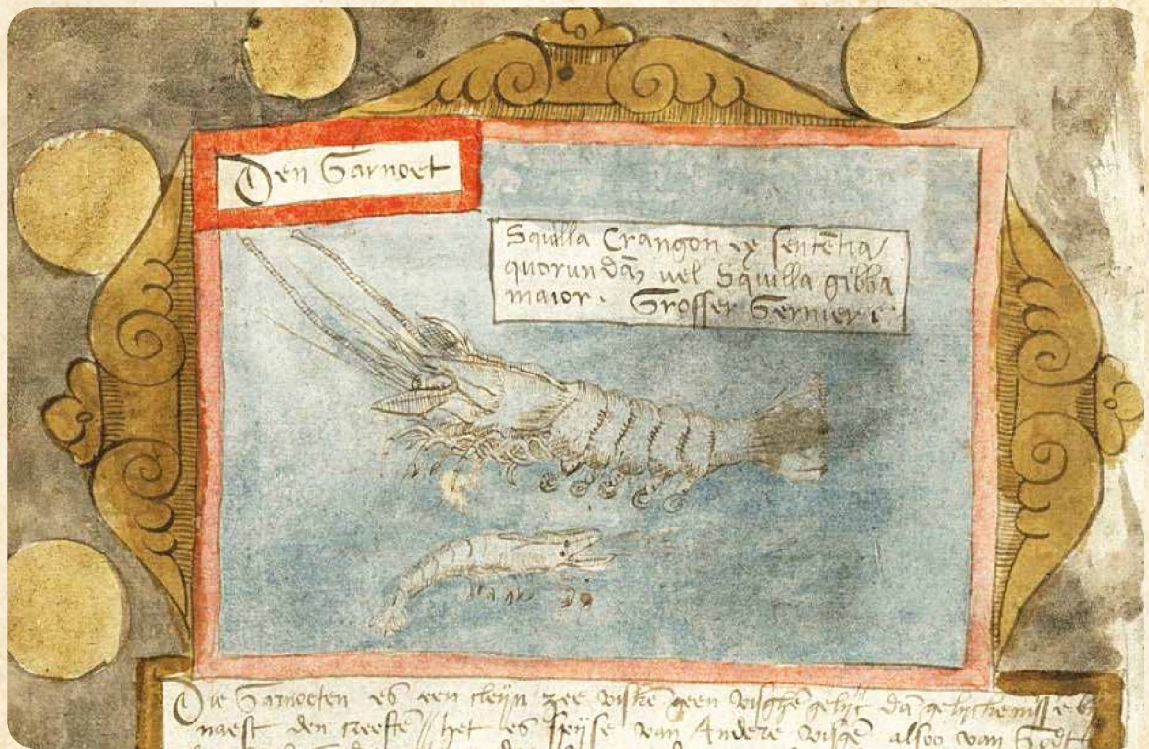 Den Garnoet
Squilla Crangon ex sententia
quorundam vel Squilla gibba
maior. Grosser Gernier
Die Garnoeten es een cleijn zee viske geen visghe gelijc da gelijckenisse
naest den creefte het es spijse van Andere visge alsoo van